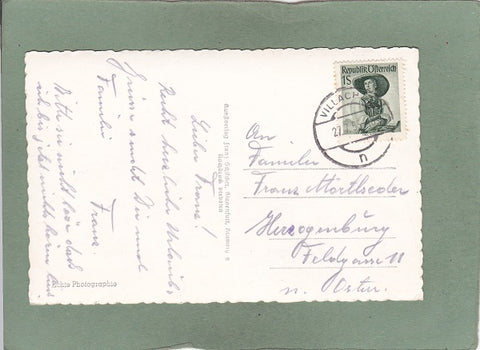 Lieber Franz!
Recht herzliche Urlaubs
Grüsse sendet Dir und
Familie
Franz.
Bitte sei nicht bös daß
ich bis jetzt nicht
Echte Photographie
Republik Österreich
1S
VILLACH
27
n
An
Familie
Franz Mörtlseder
Herzogenburg
Feldgasse 11
n. Österr.